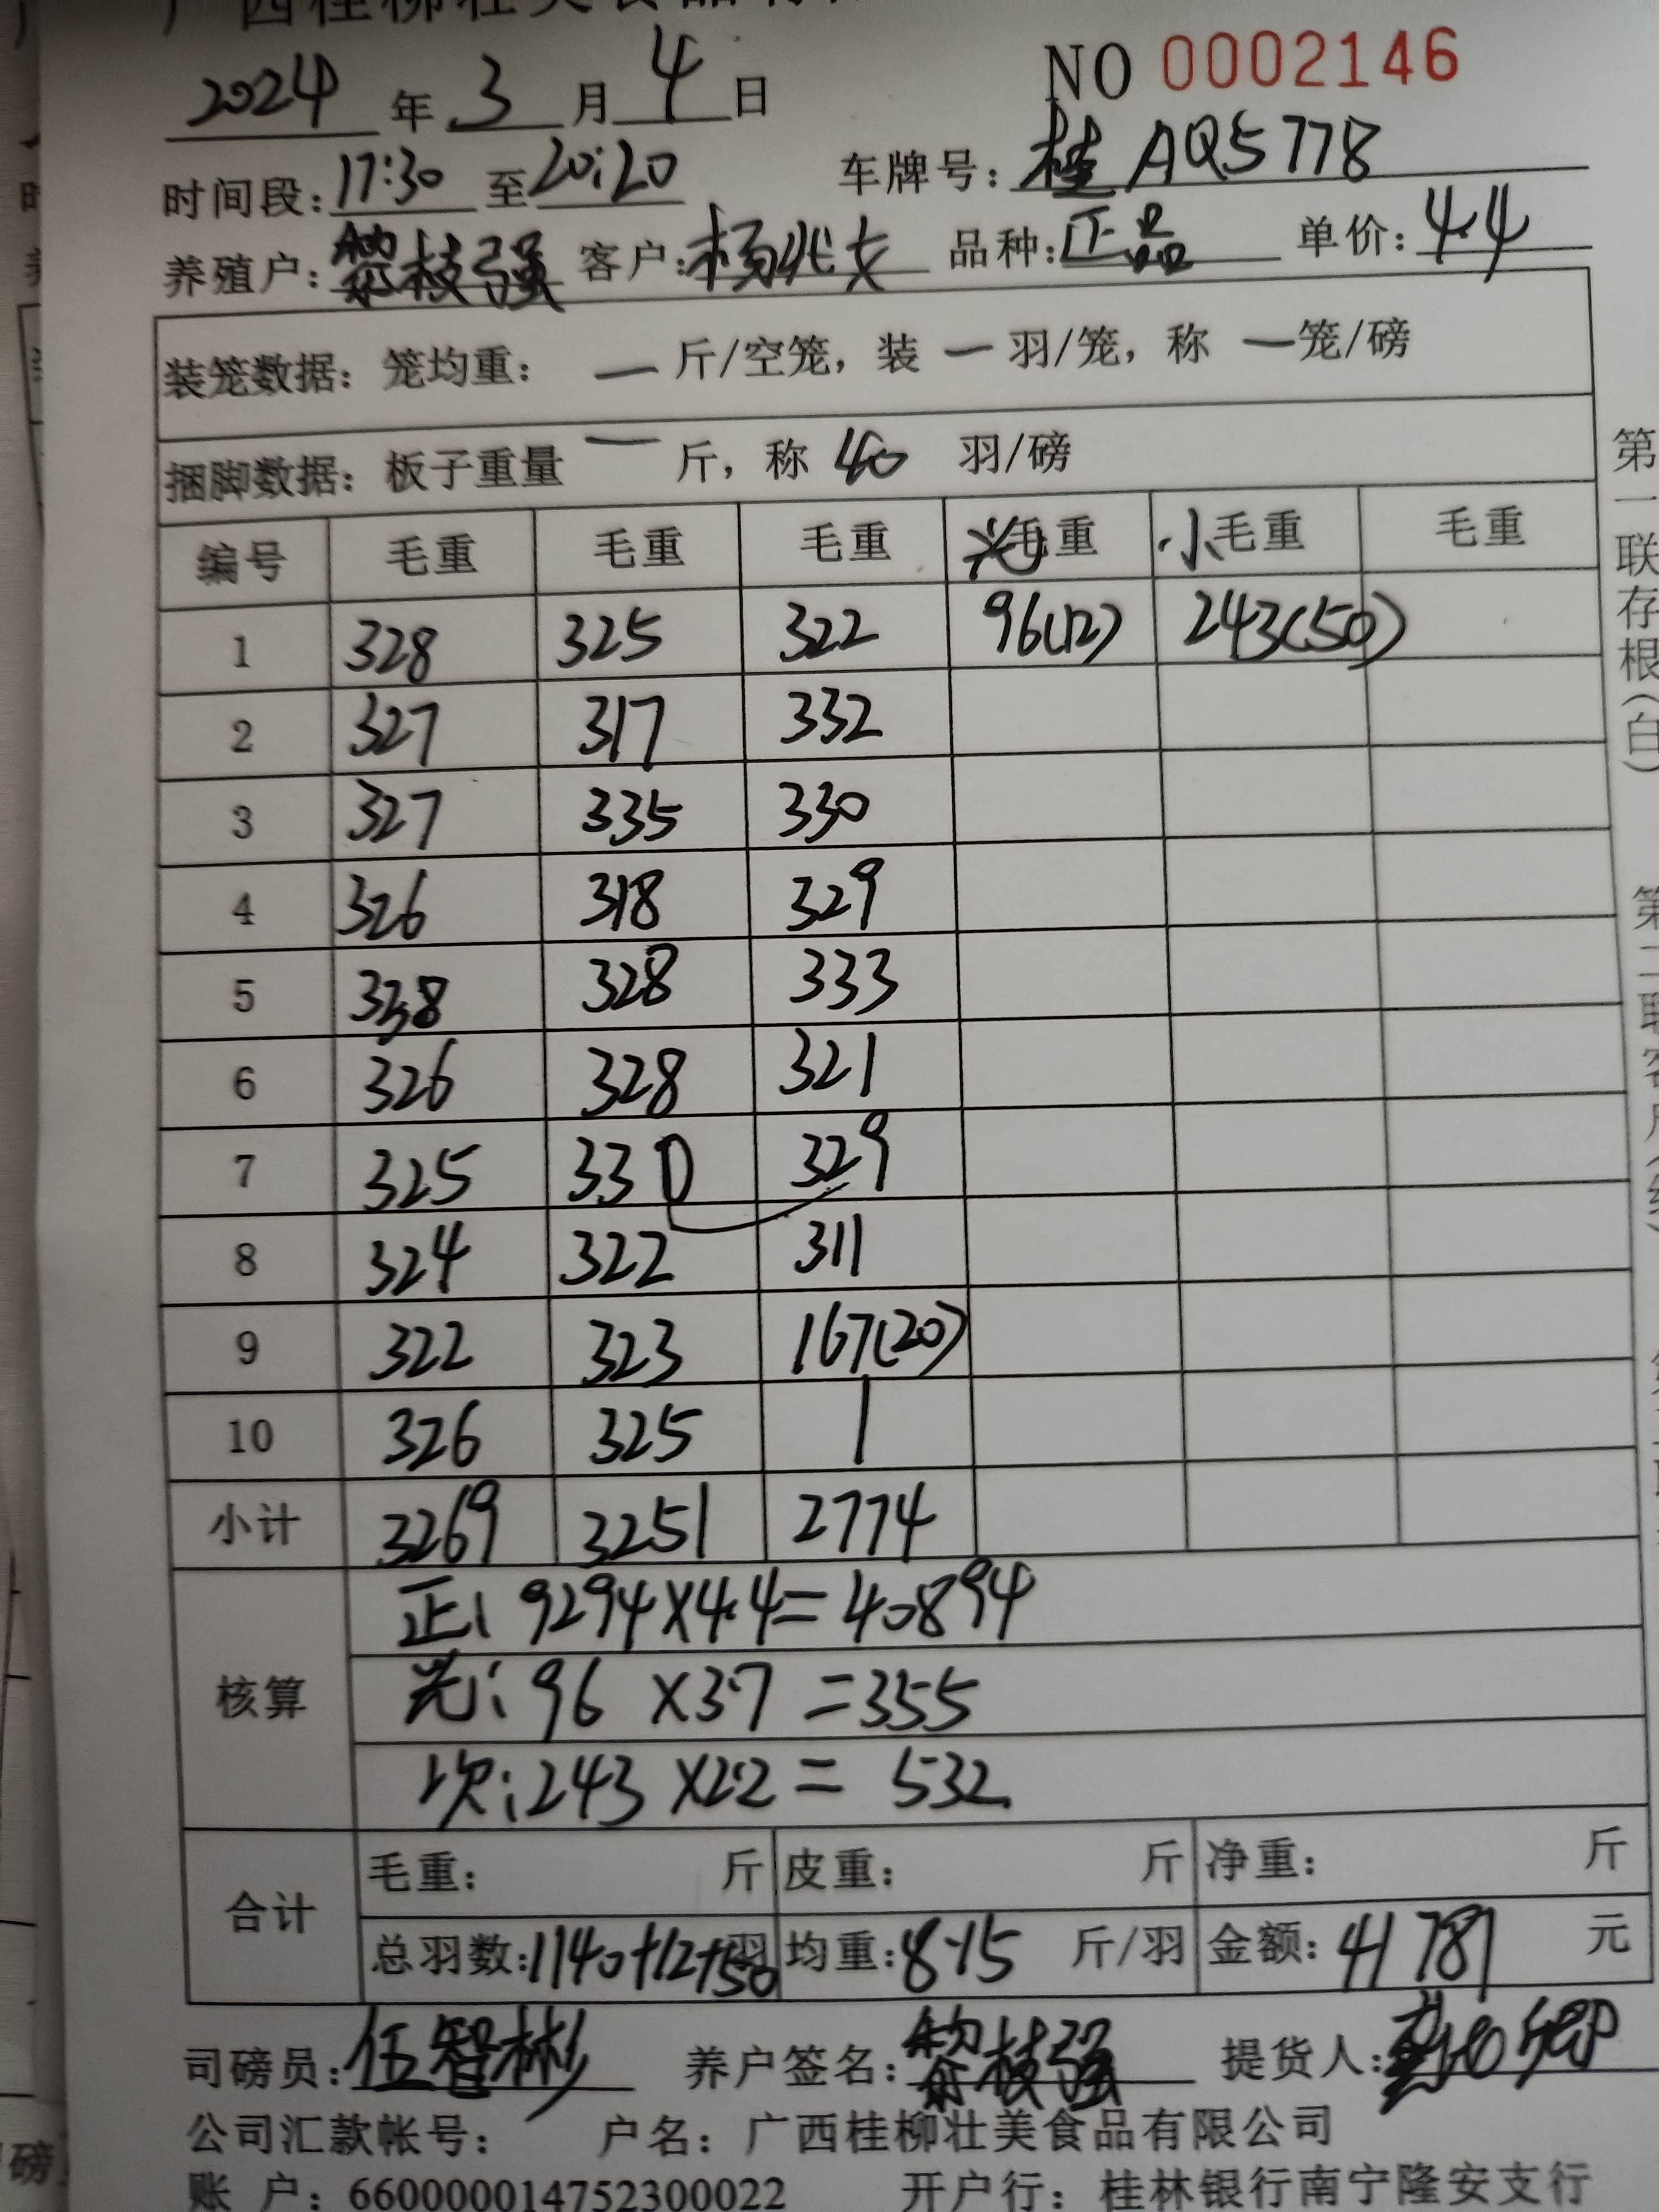 广西桂柳壮美食品有
2024 年 3 月 4 日 NO 0002146
时间段: 17:30 至 20:20 车牌号: 桂AQ5778
养殖户: 黎枝强 客户: 杨兆 品种: 正品 单价: 4.4
装笼数据: 笼均重: 一 斤/空笼, 装 一 羽/笼, 称 一 笼/磅
捆脚数据: 板子重量 一 斤, 称 40 羽/磅
编号 毛重 毛重 毛重 光毛重 小毛重 毛重
1 328 325 322 96(12) 243(50)
2 327 317 332
3 327 335 330
4 326 318 329
5 338 328 333
6 326 328 321
7 325 330 329
8 324 322 311
9 322 323 167(20)
10 326 325
小计 3269 3251 2774
核算
正: 9294×4.4=40894
光: 96×3.7=355
次: 243×2.2=532
合计
毛重: 斤 皮重: 斤 净重: 斤
总羽数: 1140+12+50羽 均重: 8.15 斤/羽 金额: 41781 元
司磅员: 伍智彬 养户签名: 黎枝强 提货人:
公司汇款帐号: 户名: 广西桂柳壮美食品有限公司
账 户: 660000014752300022 开户行: 桂林银行南宁隆安支行
第一联存根(白)
第二联客户(红
磅